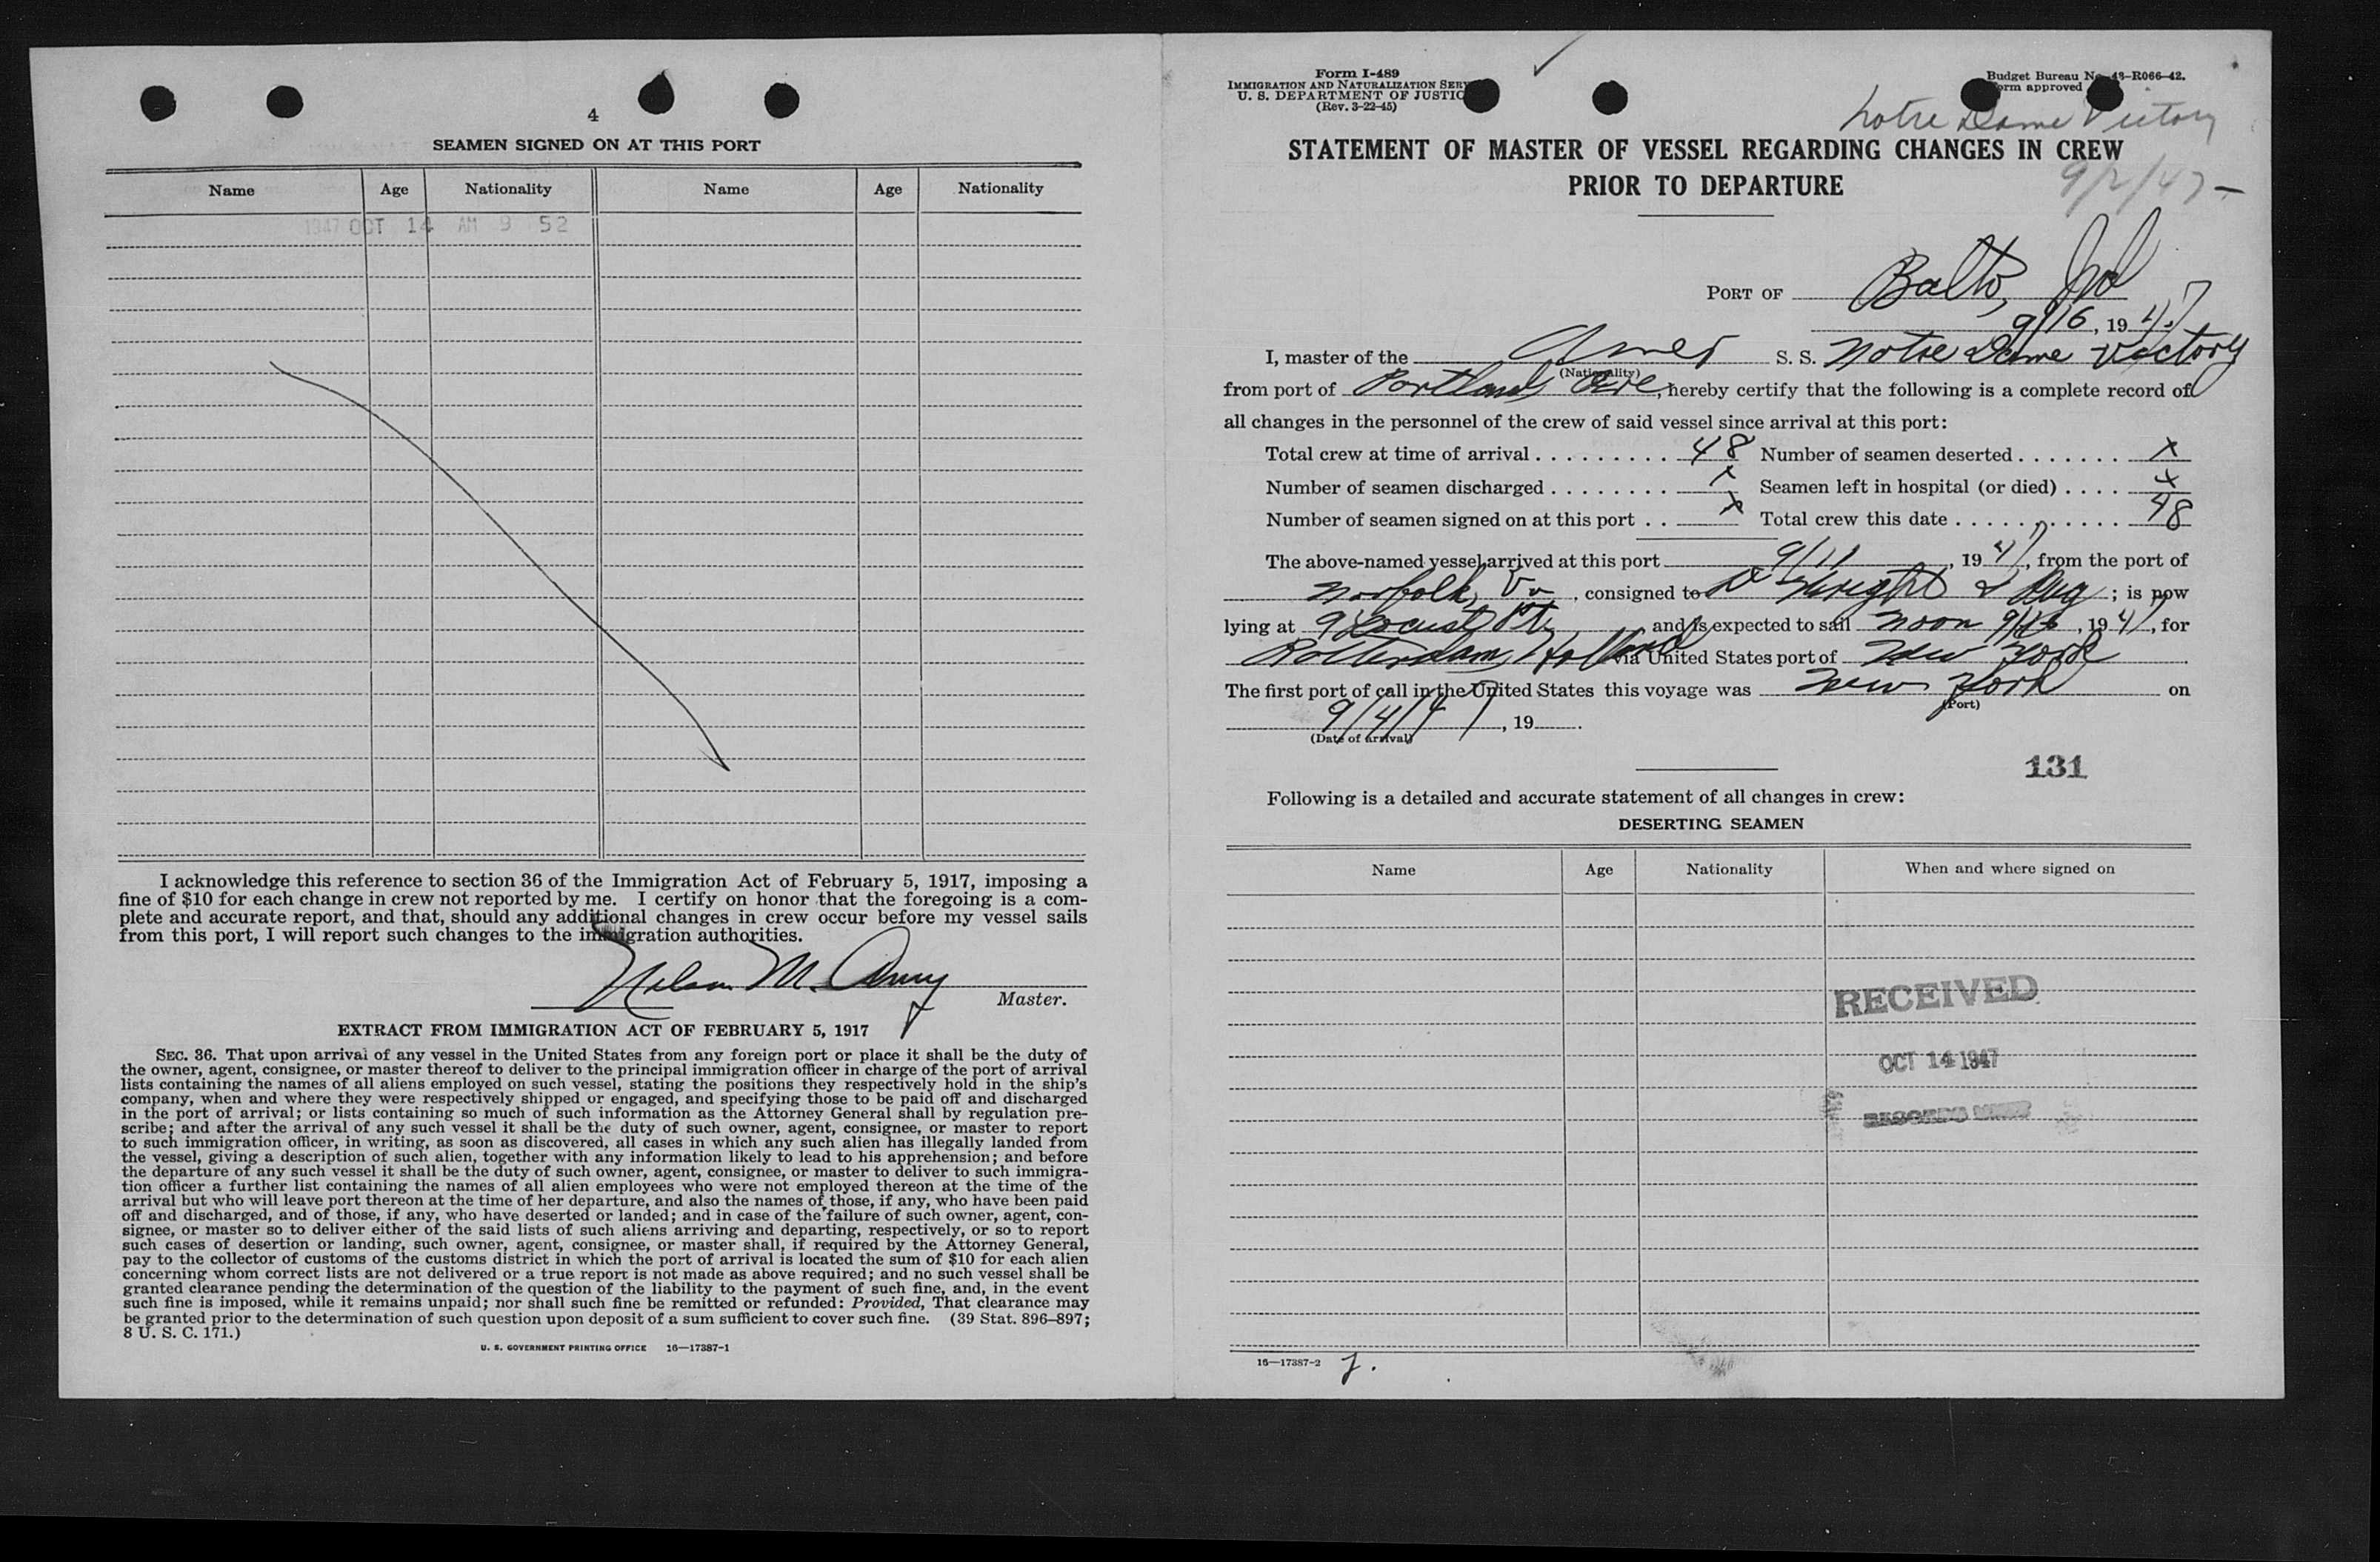 4
SEAMEN SIGNED ON AT THIS PORT
Name Age Nationality Name Age Nationality
1947 OCT 14 AM 9 52
I acknowledge this reference to section 36 of the Immigration Act of February 5, 1917, imposing a
fine of $10 for each change in crew not reported by me. I certify on honor that the foregoing is a com-
plete and accurate report, and that, should any additional changes in crew occur before my vessel sails
from this port, I will report such changes to the immigration authorities.
Nelson M.
Master.
EXTRACT FROM IMMIGRATION ACT OF FEBRUARY 5, 1917
SEC. 36. That upon arrival of any vessel in the United States from any foreign port or place it shall be the duty of
the owner, agent, consignee, or master thereof to deliver to the principal immigration officer in charge of the port of arrival
lists containing the names of all aliens employed on such vessel, stating the positions they respectively hold in the ship's
company, when and where they were respectively shipped or engaged, and specifying those to be paid off and discharged
in the port of arrival; or lists containing so much of such information as the Attorney General shall by regulation pre-
scribe; and after the arrival of any such vessel it shall be the duty of such owner, agent, consignee, or master to report
to such immigration officer, in writing, as soon as discovered, all cases in which any such alien has illegally landed from
the vessel, giving a description of such alien, together with any information likely to lead to his apprehension; and before
the departure of any such vessel it shall be the duty of such owner, agent, consignee, or master to deliver to such immigra-
tion officer a further list containing the names of all alien employees who were not employed thereon at the time of the
arrival but who will leave port thereon at the time of her departure, and also the names of those, if any, who have been paid
off and discharged, and of those, if any, who have deserted or landed; and in case of the failure of such owner, agent, con-
signee, or master so to deliver either of the said lists of such aliens arriving and departing, respectively, or so to report
such cases of desertion or landing, such owner, agent, consignee, or master shall, if required by the Attorney General,
pay to the collector of customs of the customs district in which the port of arrival is located the sum of $10 for each alien
concerning whom correct lists are not delivered or a true report is not made as above required; and no such vessel shall be
granted clearance pending the determination of the question of the liability to the payment of such fine, and, in the event
such fine is imposed, while it remains unpaid; nor shall such fine be remitted or refunded: Provided, That clearance may
be granted prior to the determination of such question upon deposit of a sum sufficient to cover such fine. (39 Stat. 896–897;
8 U. S. C. 171.)
U. S. GOVERNMENT PRINTING OFFICE 16—17387-1
Form I-489
IMMIGRATION AND NATURALIZATION SERV
U. S. DEPARTMENT OF JUSTIC
(Rev. 3-22-45)
Budget Bureau No. 43-R066-42.
Form approved
Notre Dame Victory
STATEMENT OF MASTER OF VESSEL REGARDING CHANGES IN CREW
PRIOR TO DEPARTURE
9/2/47 –
PORT OF Balto, Md
9/16, 1947
I, master of the Amer S. S. Notre Dame Victory
(Nationality)
from port of Portland, Ore, hereby certify that the following is a complete record of
all changes in the personnel of the crew of said vessel since arrival at this port:
Total crew at time of arrival . . . . . . . . . . 48 Number of seamen deserted . . . . . . . x
Number of seamen discharged . . . . . . . . x Seamen left in hospital (or died) . . . . x
Number of seamen signed on at this port . . x Total crew this date . . . . . . . . . . . 48
The above-named vessel arrived at this port 9/11, 1947, from the port of
Norfolk, Va, consigned to Wright & ; is now
lying at 9 Locust Pt, and is expected to sail Noon 9/16, 1947, for
Rotterdam, Holland via United States port of New York.
The first port of call in the United States this voyage was New York on
(Port)
9/4/47, 19 .
(Date of arrival)
131
Following is a detailed and accurate statement of all changes in crew:
DESERTING SEAMEN
Name Age Nationality When and where signed on
RECEIVED
OCT 14 1947
16—17387-2